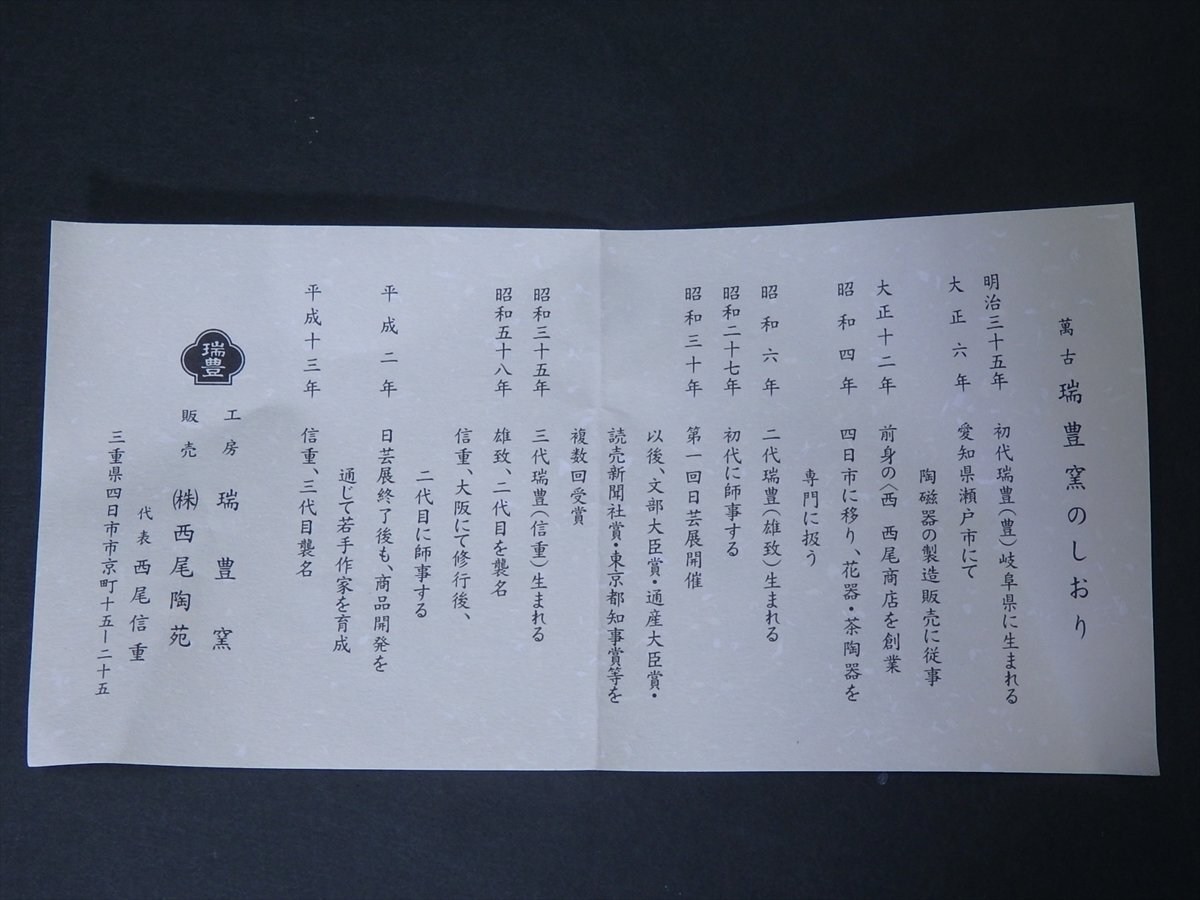 萬古 瑞豊窯のしおり
明治三十五年 初代瑞豊(豊)岐阜県に生まれる
大正六年 愛知県瀬戸市にて
陶磁器の製造販売に従事
大正十二年 前身の〈西 西尾商店を創業
昭和四年 四日市に移り、花器・茶陶器を
専門に扱う
昭和六年 二代瑞豊(雄致)生まれる
昭和二十七年 初代に師事する
昭和三十年 第一回日芸展開催
以後、文部大臣賞・通産大臣賞・
読売新聞社賞・東京都知事賞等を
複数回受賞
昭和三十五年 三代瑞豊(信重)生まれる
昭和五十八年 雄致、二代目を襲名
信重、大阪にて修行後、
二代目に師事する
平成二年 日芸展終了後も、商品開発を
通じて若手作家を育成
平成十三年 信重、三代目襲名
瑞豊
工房 瑞豊窯
販売 ㈱西尾陶苑
代表 西尾信重
三重県四日市市京町十五ー二十五